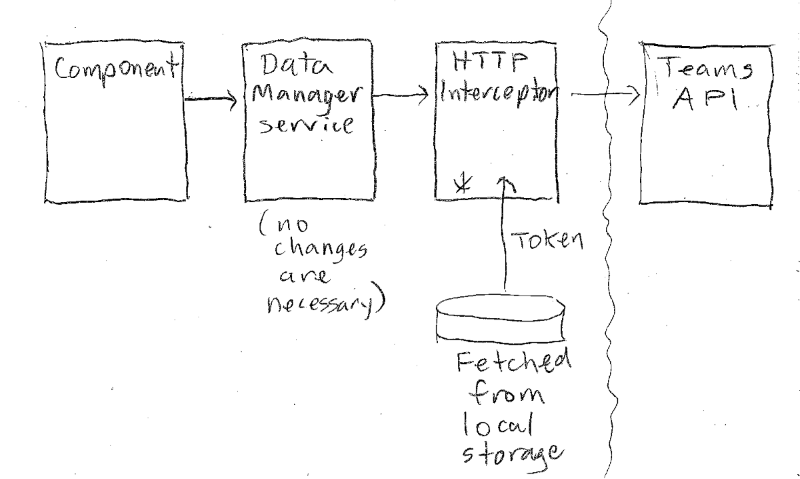 Component
Data
Manager
service
(no
changes
are
necessary)
HTTP
Interceptor
*
Token
Fetched
from
local
storage
Teams
API